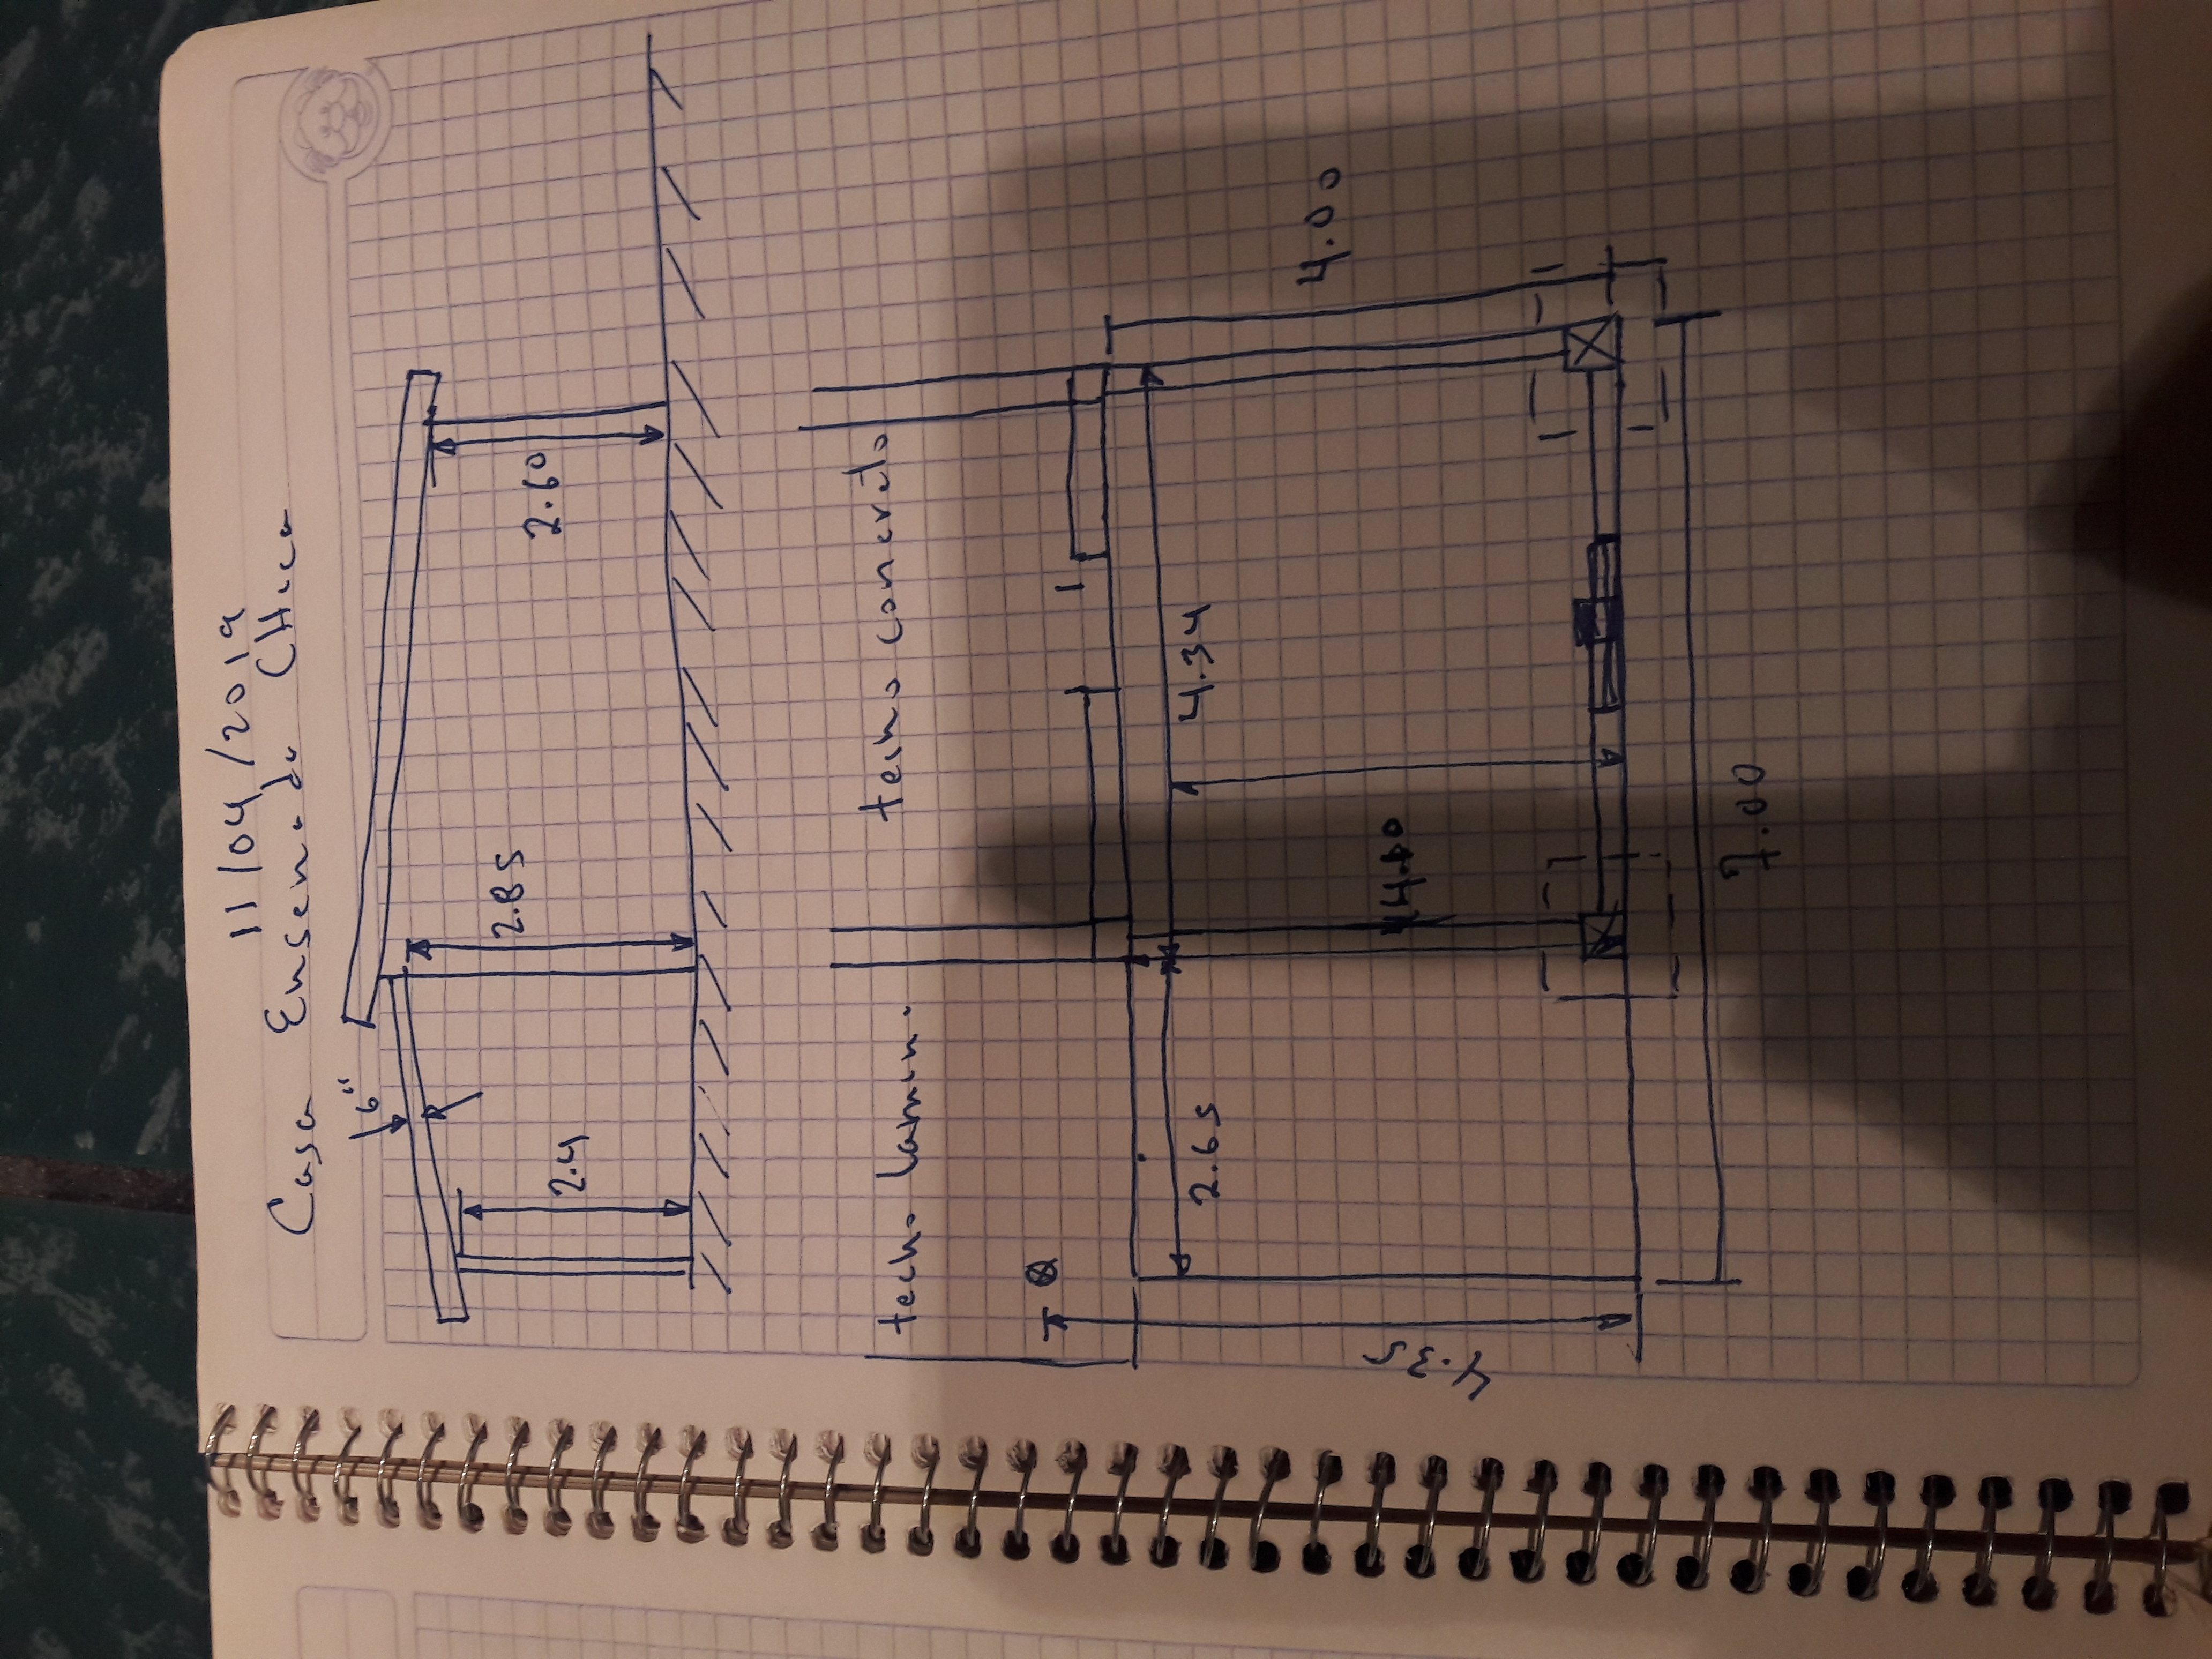 11/04/2019
Casa Ensenada CHica
6"
2.85
2.60
2.4
techo lamina
techo concreto
2.65
4.34
4.00
4.35
7.00